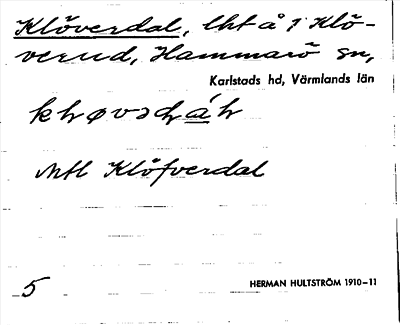 Klöverdal, lht å 1 Klö-
verud, Hammarö sn,
Karlstads hd, Värmlands län
Mtl Klöfverdal
5
HERMAN HULTSTRÖM 1910–11